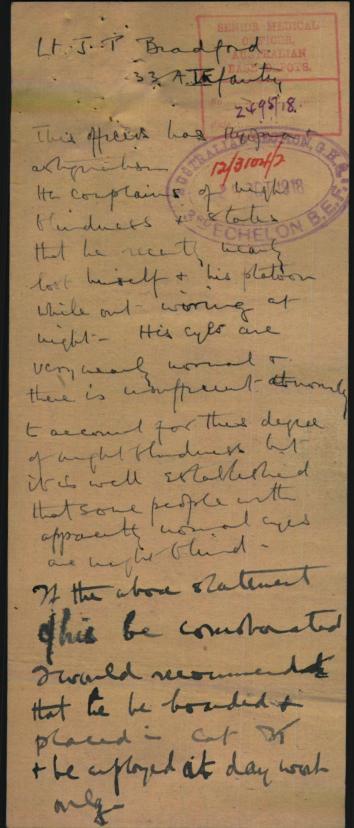 Lt. J. T. Bradford
33 A Infantry
SENIOR MEDICAL
OFFICER,
AUSTRALIAN
BASE DEPOTS.
2495/18.
This officer has
astigmatism
12/3102/2
He complains of night
blindness & states
that he recently nearly
lost himself & his platoon
while out wiring at
night - His eyes are
very nearly normal &
there is insufficient abnormality
to account for this degree
of night blindness but
it is well established
that some people with
apparently normal eyes
are night blind -
If the above statement
of his be corroborated
I would recommend
that he be boarded &
placed in Cat
& be employed at day work
only
AUSTRALIAN SECTION, G.H.Q.
1918
3RD ECHELON B.E.F.